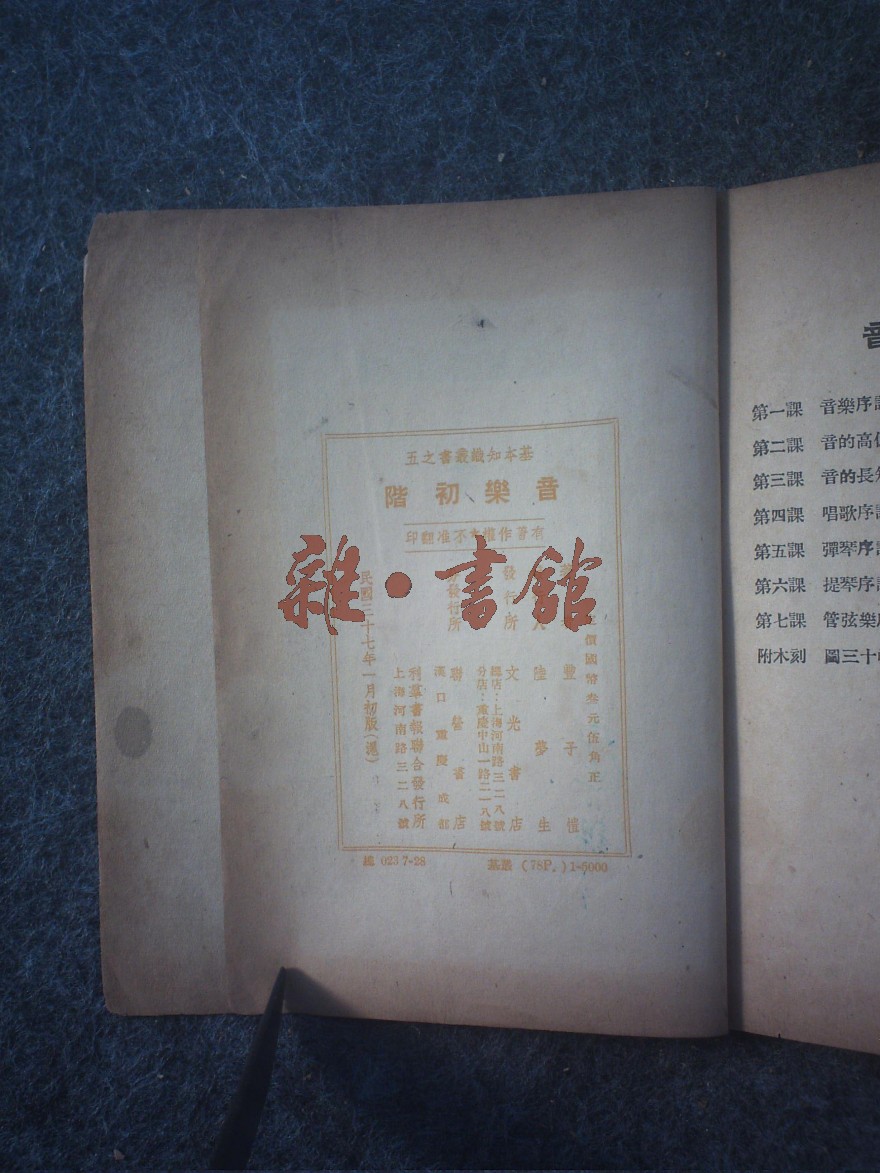 基本知識叢書之五
音樂初階
有著作權・不准翻印
定價國幣叁元伍角正
豐子愷
發行人 陸夢生
發行所 文光書店
總店：上海河南路三二八號
分店：重慶中山一路二一八號
分發行所 聯營書店
漢口 重慶 成都
利羣書報聯合發行所
上海河南路三二八號
民國三十七年一月初版(滬)
總 023 7-28
基叢 (78P.) 1-5000
雜・書館
音
第一課 音樂序
第二課 音的高
第三課 音的長
第四課 唱歌序
第五課 彈琴序
第六課 提琴序
第七課 管弦樂
附木刻 圖三十